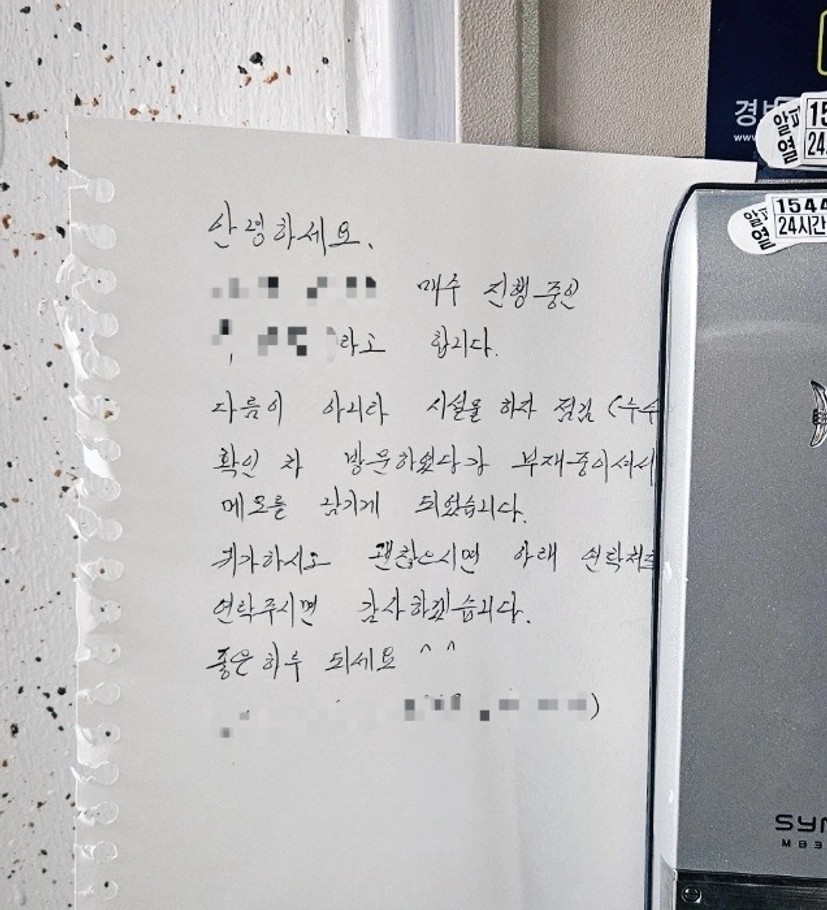 경보
www
알파
열
15
24
알파
열
1544
24시간
안녕하세요.
매수 진행중인
라고 합니다.
다름이 아니라 시설물 하자 점검 (누수
확인 차 방문하였다가 부재중이셔서
메모를 남기게 되었습니다.
귀가하시고 괜찮으시면 아래 연락처로
연락주시면 감사하겠습니다.
좋은하루 되세요 ^^
)
SYN
MB3